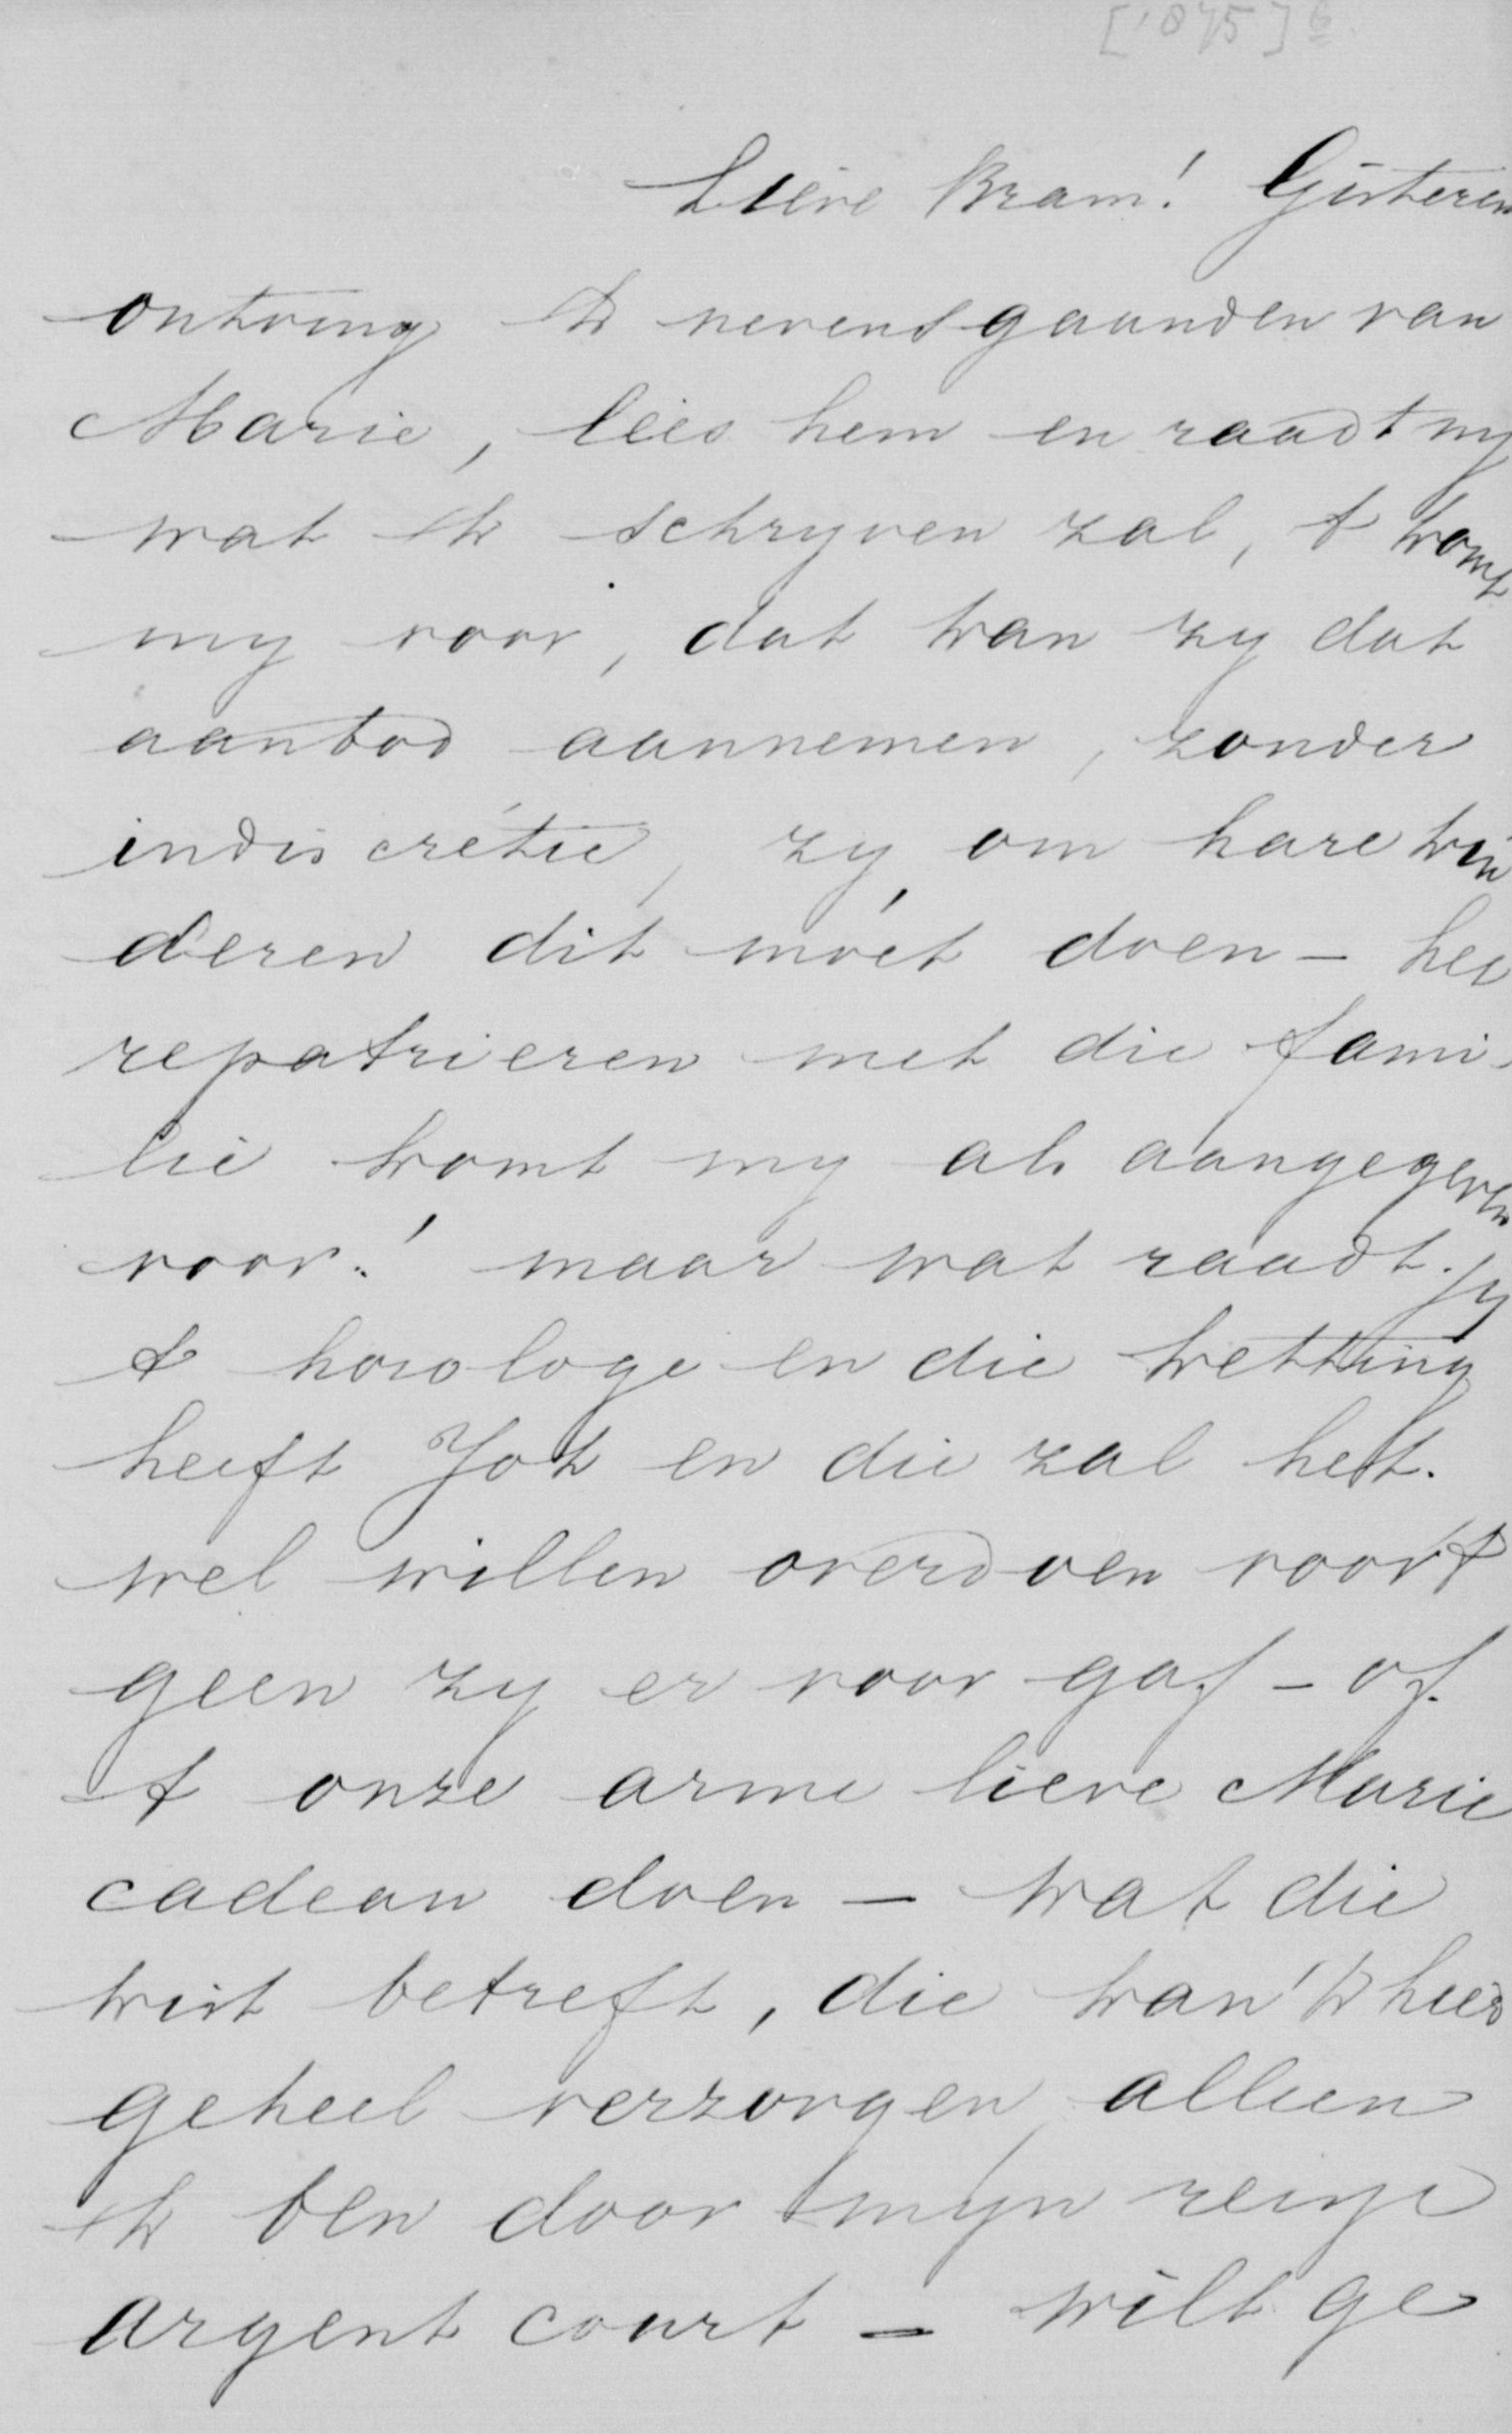 [1875] 6
Lieve Bram! Gisteren
ontving ik nevensgaanden van
Marie, lees hem en raadt my
wat ik schryven zal, 't komt
my voor, dat kan zy dat
aanbod aannemen, zonder
indiscrétie, zy, om hare kin
deren dit moét doen – het
repatrieren met die fami-
lie komt my als aangegeven
voor! maar wat raadt jy
't horologe en die ketting
heeft Jok en die zal het
wel willen overdoen voor 't
geen zy er voor gaf – of
't onze arme lieve Marie
cadeau doen – wat die
kist betreft, die kan 'k hier
geheel verzorgen alleen
ik ben door myn reisje
argent court – wilt ge